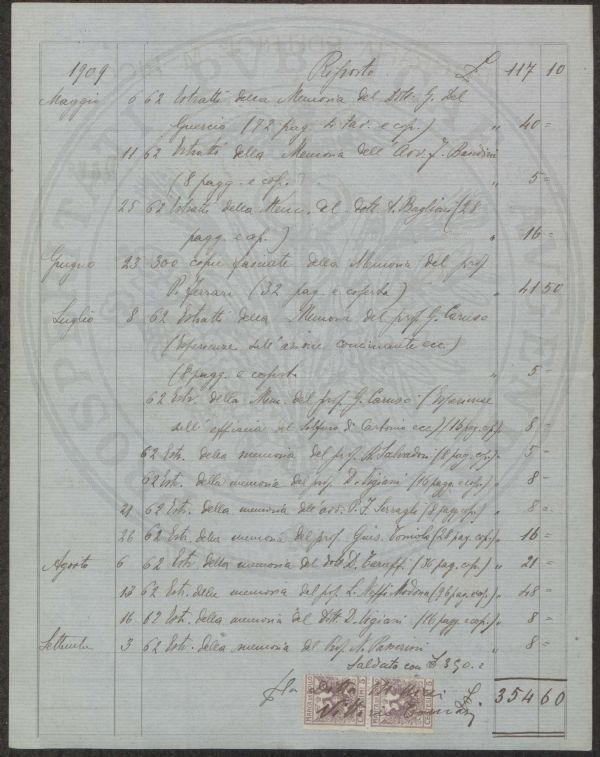 1909 Riporto £ 117 10
Maggio 6 62 Estratti della Memoria del Dott. G. Del
Guercio (72 pag. e cop.) " 40 =
11 62 Estratti della Memoria dell'Avv. J. Bandini
(8 pagg. e cop.) " 5 =
25 62 Estratti della Mem. del dott. A. Bagliani (28
pagg. e cop.) " 16 =
Giugno 23 300 copie della Memoria del prof
P. Ferrari (32 pag. e coperta) " 41 50
Luglio 8 62 Estratti della Memoria del prof. G. Caruso
(Esperienze sull'azione concimante ecc.)
(8 pagg. e coperta " 5 =
62 Estr. della Mem. del prof. G. Caruso (Esperienze
sull'efficacia del Solfuro di Carbonio ecc) (16 pag. cop.) " 8 =
62 Estr. della memoria del prof. R. Salvadori (8 pag. cop.) " 5 =
62 Estr. della memoria del prof. D. Vigiani (16 pagg. e cop.) " 8 =
21 62 Estr. della memoria dell'avv. P. F. Serragli (8 pag. cop.) " 8 =
26 62 Estr. della memoria del prof. Gius. (28 pag. cop.) " 16 =
Agosto 6 62 Estr. della memoria del dott. D. Taruffi (36 pag. cop.) " 21 =
13 62 Estr. della memoria del prof. L. Neppi Modona (96 pag. e cop.) " 48 =
16 62 Estr. della memoria del Dott. D. Vigiani (16 pagg. e cop.) " 8 =
Settembre 3 62 Estr. della memoria del Prof. N. Passerini " 8 =
Saldato con £ 350. =
£ 354 60